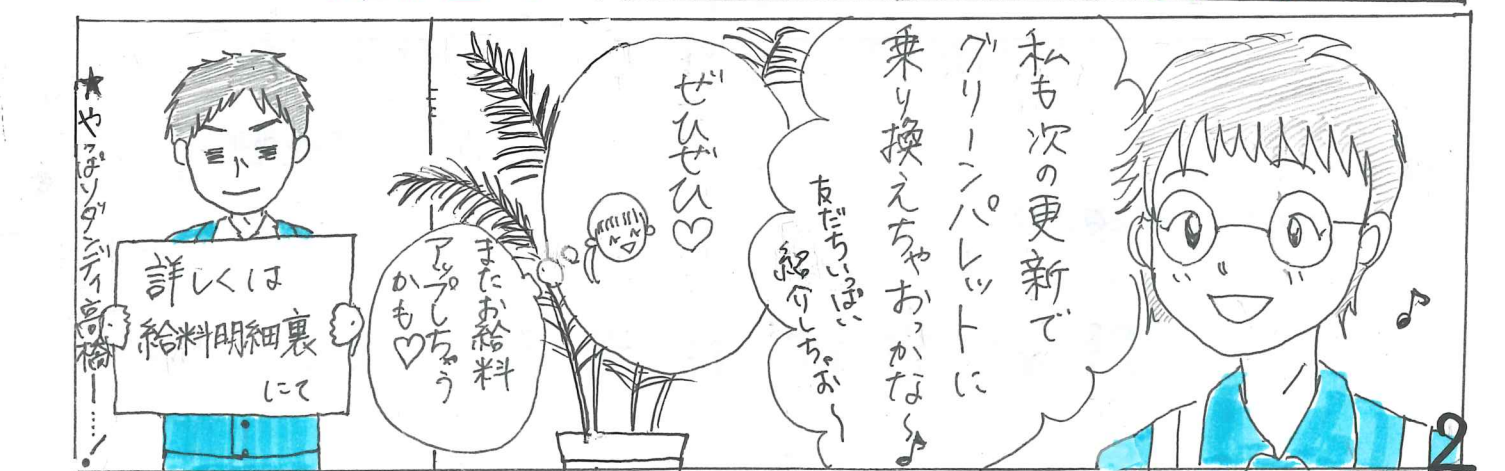 私も次の更新で
グリーンパレットに
乗り換えちゃおっかな〜♪
友だちいっぱい
紹介しちゃお〜
ぜひぜひ♡
またお給料
アップしちゃう
かも♡
詳しくは
給料明細裏
にて
★やっぱりダンディ高橋ー……!
2